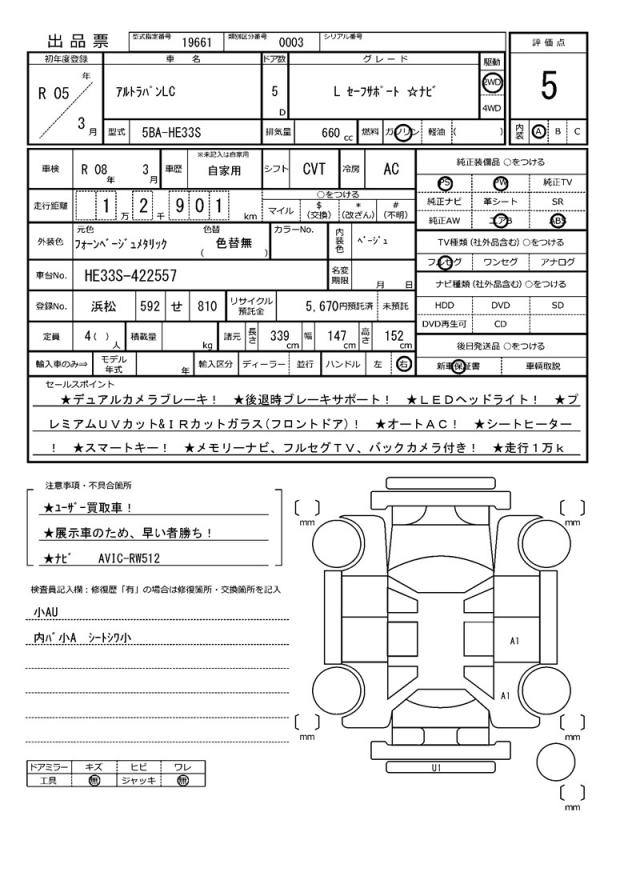 出品票 型式指定番号 19661 類別区分番号 0003 シリアル番号
評価点
初年度登録 車名 ドア数 グレード 駆動
R 05 年 3 月 アルトラパンLC 5 D L セーフサポート ☆ナビ 2WD 4WD 5
型式 5BA-HE33S 排気量 660 cc 燃料 ガソリン 軽油 ( ) 内装 A B C
車検 R 08 年 3 月 車歴 ※未記入は自家用 自家用 シフト CVT 冷房 AC 純正装備品 ○をつける
PS PW 純正TV
走行距離 1 万 2 千 9 0 1 km ○をつける マイル $ (交換) * (改ざん) # (不明) 純正ナビ 革シート SR
純正AW エアB ABS
外装色 元色 フォーンベージュメタリック 色替 ( 色替無 ) カラーNo. 内装色 ベージュ TV種類 (社外品含む) ○をつける
フルセグ ワンセグ アナログ
車台No. HE33S-422557 名変期限 月 日 ナビ種類 (社外品含む) ○をつける
登録No. 浜松 592 せ 810 リサイクル預託金 5,670円預託済 未預託 HDD DVD SD
DVD再生可 CD
定員 4( ) 人 積載量 kg 諸元 長さ 339 cm 幅 147 cm 高さ 152 cm 後日発送品 ○をつける
輸入車のみ⇒ モデル年式 年 輸入区分 ディーラー 並行 ハンドル 左 右 新車保証書 車輌取説
セールスポイント
★デュアルカメラブレーキ！ ★後退時ブレーキサポート！ ★ＬＥＤヘッドライト！ ★プ
レミアムＵＶカット&ＩＲカットガラス(フロントドア)！ ★オートＡＣ！ ★シートヒーター
！ ★スマートキー！ ★メモリーナビ、フルセグＴＶ、バックカメラ付き！ ★走行１万ｋ
注意事項・不具合箇所
★ユーザー買取車！
★展示車のため、早い者勝ち！
★ナビ AVIC-RW512
検査員記入欄：修復歴「有」の場合は修復箇所・交換箇所を記入
小AU
内バ小A シートシワ小
ドアミラー キズ ヒビ ワレ
工具 無 ジャッキ 無
[ ] mm
[ ] mm
A1
A1
[ ] mm
[ ] mm
U1
[ ] mm